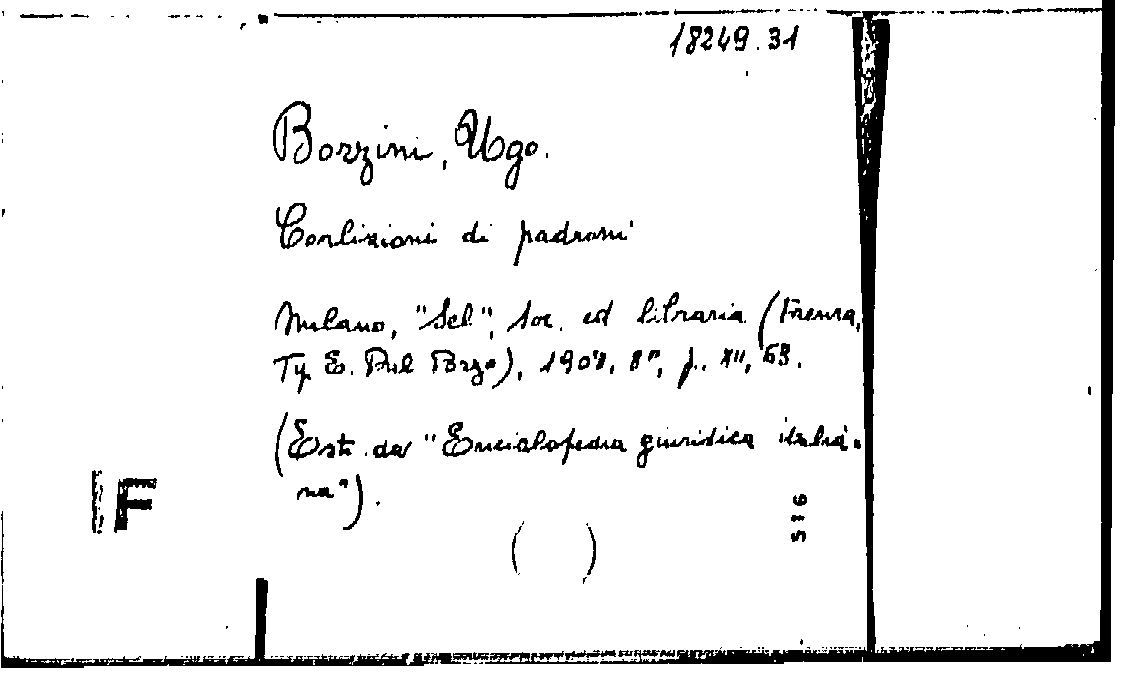 18249.31
Borzini, Ugo.
Coalizioni di padroni
Milano, "Sel", Soc. ed libraria (Firenze,
Ty. E. Del Bozo), 1908, 8°, p. XII, 63.
(Estr. da "Enciclopedia giuridica italia-
na").
( )
516
F